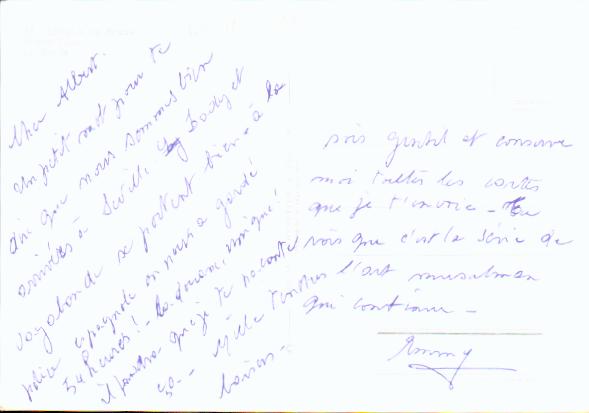 Cher Albert.
Un petit mot pour te
dire que nous sommes bien
arrivées à Séville. Lady et
vagabonde se portent bien - à la
police espagnole on nous a gardé
5 heures! - la douane, unique!
il faudra que je te raconte
ça -- Mille tendres
baisers -
sois gentil et conserve
moi toutes les cartes
que je t'envoie - Tu
vois que c'est la série de
l'art musulman
qui continue -
Emmy